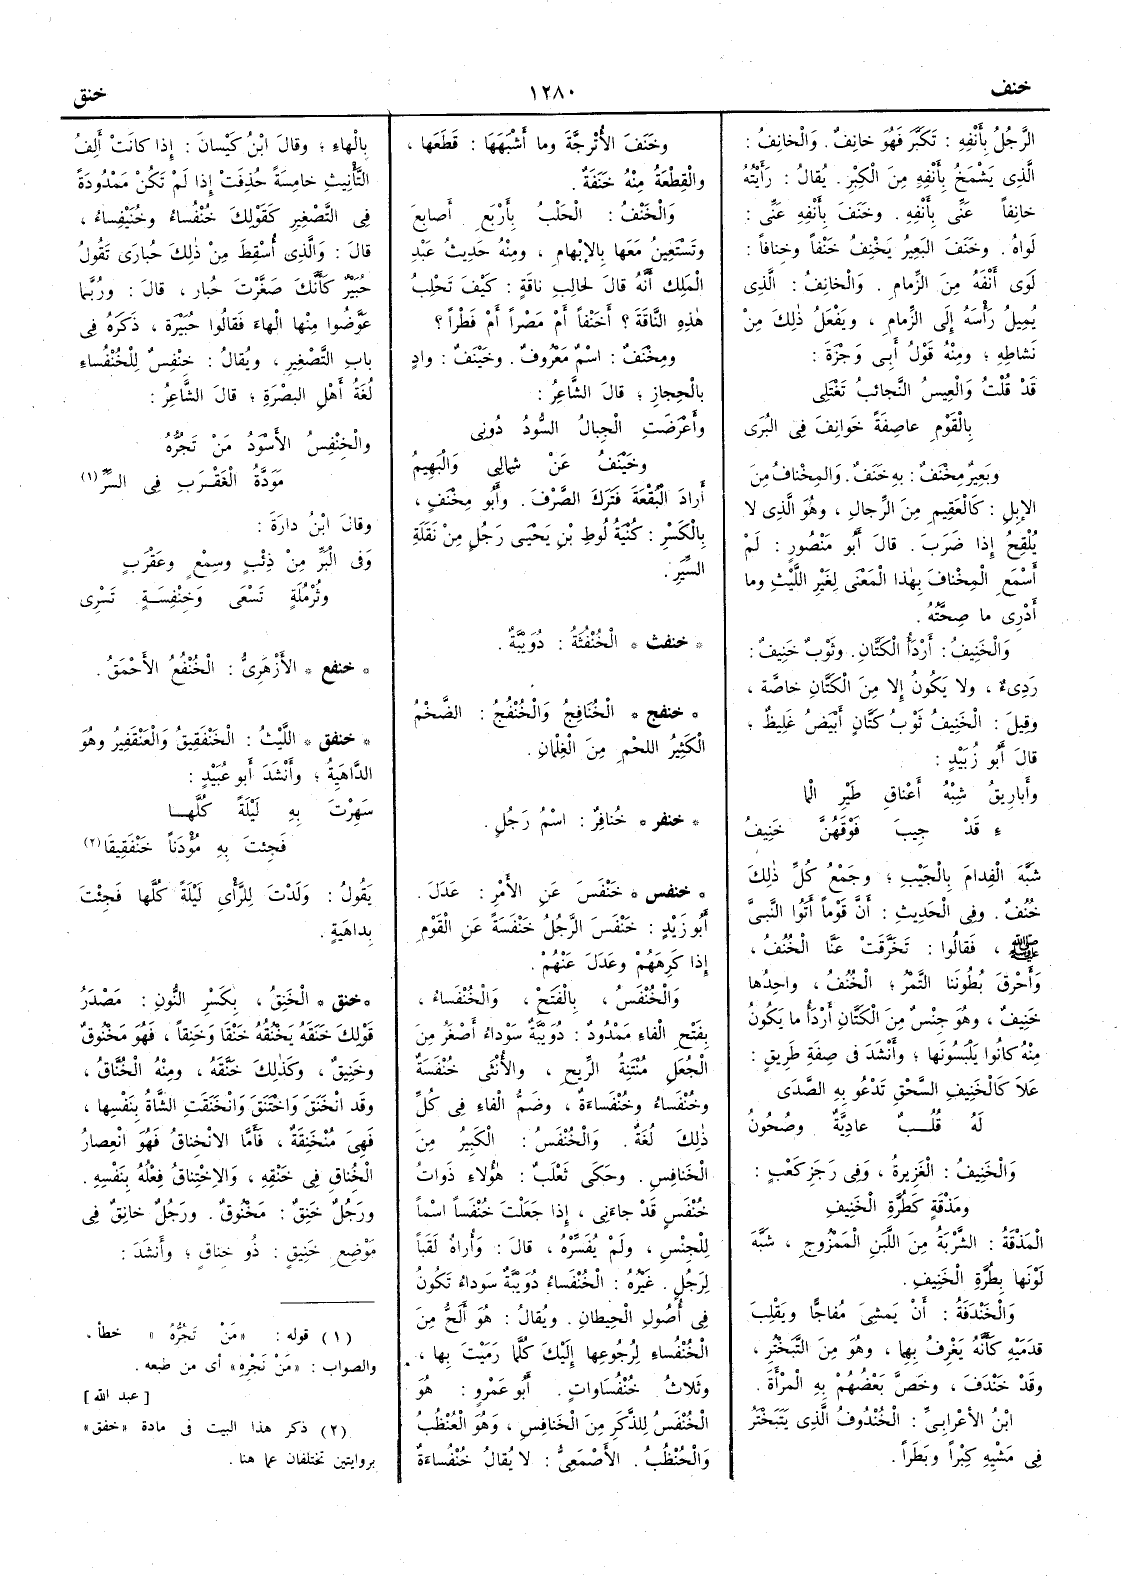 خنف
١٢٨٠
خنق
الرَّجُلُ بِأَنْفِهِ : تَكَبَّرَ فَهُوَ خانِفٌ. وَالْخانِفُ :
الَّذِى يَشْمَخُ بِأَنْفِهِ مِنَ الْكِبْرِ. يُقالُ : رَأَيْتُهُ
خانِفاً عَنِّى بِأَنْفِهِ. وخَنَفَ بِأَنْفِهِ عَنِّى :
لَواهُ. وخَنَفَ البَعِيرُ يَخْنِفُ خَنْفاً وخِنافاً :
لَوَى أَنْفَهُ مِنَ الزِّمامِ. وَالْخانِفُ : الَّذِى
يُمِيلُ رَأْسَهُ إِلَى الزِّمامِ ، ويَفْعَلُ ذٰلِكَ مِنْ
نَشاطِهِ ؛ ومِنْهُ قَوْلُ أَبِى وَجْزَةَ :
قَدْ قُلْتُ وَالْعِيسُ النَّجائبُ تَغْتَلِى
بِالْقَوْمِ عاصِفَةً خَوانِفَ فِى البُرَى
وبَعِيرٌ مِخْنَفٌ : بِهِ خَنَفٌ. وَالمِخْنافُ مِنَ
الإبِلِ : كَالْعَقِيمِ مِنَ الرِّجالِ ، وهُوَ الَّذِى لا
يُلْقِحُ إِذا ضَرَبَ. قالَ أَبُو مَنْصُورٍ : لَمْ
أَسْمَعِ الْمِخْنافَ بِهٰذا الْمَعْنَى لِغَيْرِ اللَّيْثِ وما
أَدْرِى ما صِحَّتُهُ.
وَالْخَنِيفُ : أَرْدَأُ الْكَتَّانِ. وثَوْبٌ خَنِيفٌ :
رَدِىءٌ ، ولا يَكُونُ إلا مِنَ الْكَتَّانِ خاصَّة ،
وقِيلَ : الْخَنِيفُ ثَوْبُ كَتَّانٍ أَبْيَضُ غَلِيظٌ ؛
قالَ أَبُو زُبَيْدٍ :
وأَبارِيقُ شِبْهُ أَعْناقِ طَيْرِ الْما
ءِ قَدْ جِيبَ فَوْقَهُنَّ خَنِيفُ
شَبَّهَ الْفِدامَ بِالْجَيْبِ ؛ وجَمْعُ كُلِّ ذٰلِكَ
خُنُفٌ. وفِى الْحَدِيثِ : أَنَّ قَوْماً أَتَوُا النَّبِىَّ
ﷺ ، فَقالُوا : تَخَرَّقَتْ عَنَّا الْخُنُفُ ،
وَأَحْرَقَ بُطُونَنا التَّمْرُ ؛ الْخُنُفُ ، واحِدُها
خَنِيفٌ ، وهُوَ جِنْسٌ مِنَ الْكَتَّانِ أَرْدَأُ ما يَكُونُ
مِنْهُ كانُوا يَلْبَسُونَها ؛ وأَنْشَدَ فى صِفَةِ طَرِيقٍ :
عَلاَ كَالْخَنِيفِ السَّحْقِ تَدْعُو بِهِ الصَّدَى
لَهُ قُلُـــبٌ عادِيَّةٌ وصُحُونُ
وَالْخَنِيفُ : الْغَزِيرةُ ، وَفِى رَجَزِ كَعْبٍ :
ومَذْقَةٍ كَطُرَّةِ الْخَنِيفِ
الْمَذْقَةُ : الشَّرْبَةُ مِنَ اللَّبَنِ الْمَمْزُوجِ ، شَبَّهَ
لَوْنَها بِطُرَّةِ الْخَنِيفِ.
وَالْخَنْدَفَةُ : أَنْ يَمْشِىَ مُفاجًّا ويَقْلِبَ
قَدَمَيْهِ كَأَنَّهُ يَغْرِفُ بِها ، وهُوَ مِنَ التَّبَخْتُرِ ،
وقَدْ خَنْدَفَ ، وخَصَّ بَعْضُهُمْ بِهِ المَرْأَةَ.
ابْنُ الأعْرابِىِّ : الْخُنْدُوفُ الَّذِى يَتَبَخْتَرُ
فِى مَشْيِهِ كِبْراً وبَطَراً.
وخَنَفَ الأُتْرجَّةَ وما أَشْبَهَها : قَطَعَها ،
والْقِطْعَةُ مِنْهُ خَنَفَةٌ.
وَالْخَنْفُ : الْحَلْبُ بِأَرْبَعِ أَصابِعَ
وتَسْتَعِينُ مَعَها بِالإبْهامِ ، ومِنْهُ حَدِيثُ عَبْدِ
الْمَلِكِ أَنَّهُ قالَ لِحالِبِ ناقَةٍ : كَيْفَ تَحْلِبُ
هٰذِهِ النَّاقَةَ ؟ أَخَنْفاً أَمْ مَصْراً أَمْ فَطْراً ؟
ومِخْنَفٌ : اسْمٌ مَعْرُوفٌ. وخَيْنَفٌ : وادٍ
بِالْحِجازِ ؛ قالَ الشَّاعِرُ :
وأَعْرَضَتِ الْجِبالُ السُّودُ دُونِى
وخَيْنَفُ عَنْ شِمالِى وَالْبَهِيمُ
أَرادَ الْبُقْعَةَ فَتَرَكَ الصَّرْفَ. وأَبُو مِخْنَفٍ ،
بِالْكَسْرِ : كُنْيَةُ لُوطِ بْنِ يَحْيَى رَجُلٍ مِنْ نَقَلَةِ
السِّيَرِ.
* خنفث * الْخُنْفُثَةُ : دُوَيْبَّةٌ.
* خنفج * الْخُنافِجُ وَالْخُنْفُجُ : الضَّخْمُ
الْكَثِيرُ اللحْمِ مِنَ الْغِلمانِ.
* خنفر * خُنافِرٌ : اسْمُ رَجُلٍ.
* خنفس * خَنْفَسَ عَنِ الأَمْرِ : عَدَلَ.
أَبُو زَيْدٍ : خَنْفَسَ الرَّجُلُ خَنْفَسَةً عَنِ الْقَوْمِ
إِذا كَرِهَهُمْ وعَدَلَ عَنْهُمْ.
وَالْخُنْفَسُ ، بِالْفَتْحِ ، وَالْخُنْفَساءُ ،
بِفَتْحِ الْفاءِ مَمْدُودٌ : دُوَيْبَّةٌ سَوْداءُ أَصْغَرُ مِنَ
الْجُعَلِ مُنْتِنَةُ الرِّيحِ ، والأُنْثَى خُنْفَسَةٌ
وخُنْفَساءُ وخُنْفَساءَةٌ ، وضَمُّ الْفاءِ فِى كُلِّ
ذٰلِكَ لُغَةٌ. وَالْخُنْفَسُ : الْكَبِيرُ مِنَ
الْخَنافِسِ. وحَكَى ثَعْلَبٌ : هٰؤُلاءِ ذَواتُ
خُنْفَسٍ قَدْ جاءَنِى ، إِذا جَعَلْتَ خُنْفَساً اسْماً
لِلْجِنْسِ ، ولَمْ يُفَسِّرْهُ ، قالَ : وأُراهُ لَقَباً
لِرَجُلٍ. غَيْرُهُ : الْخُنْفَساءُ دُوَيْبَّةٌ سَوداءُ تَكُونُ
فِى أُصُولِ الْحِيطانِ. ويُقالُ : هُوَ أَلَحُّ مِنَ
الْخُنْفَساءِ لِرُجُوعِها إِلَيْكَ كُلَّما رَمَيْتَ بِها ،
وثَلاثُ خُنْفُساواتٍ. أَبُو عَمْرٍو : هُوَ
الْخُنْفَسُ لِلذَّكَرِ مِنَ الْخَنافِسِ ، وَهُوَ الْعُنْظُبُ
وَالْحُنْظُبُ. الأَصْمَعِىُّ : لا يُقالُ خُنْفُساءَةٌ
بِالْهاءِ ؛ وقالَ ابْنُ كَيْسانَ : إِذا كانَتْ أَلِفُ
التَّأْنِيثِ خامِسةً حُذِفَتْ إِذا لَمْ تَكُنْ مَمْدُودَةً
فِى التَّصْغِيرِ كَقَوْلِكَ خُنْفُساءُ وخُنَيْفِساءُ ،
قالَ : وَالَّذِى أُسْقِطَ مِنْ ذٰلِكَ حُبارَى تَقُولُ
حُبَيْرٌ كَأَنَّكَ صَغَّرْتَ حُبار ، قالَ : ورُبَّما
عَوَّضُوا مِنْها الْهاءَ فَقالُوا حُبَيِّرَة ، ذَكَرَهُ فِى
بابِ التَّصْغِيرِ ، ويُقالُ : خِنْفِسٌ لِلْخُنْفُساءِ
لُغَةُ أَهْلِ البصْرَةِ ؛ قالَ الشَّاعِرُ :
والْخِنْفِسُ الأَسْوَدُ مَنْ تَجُرُّهُ
مَوَدَّةُ الْعَقْـرَبِ فِى السـرِّ(١)
وقالَ ابْنُ دارَةَ :
وَفى الْبَرِّ مِنْ ذِئْبٍ وسِمْعٍ وعَقْرَبٍ
وثُرْمُلَةٍ تَسْعَى وَخِنْفِسَـــةٍ تَسْرِى
* خنفع * الأَزْهَرِىُّ : الْخُنْفُعُ الأَحْمَقُ.
* خنفق * اللَّيْثُ : الْخَنْفَقِيقُ وَالْعَنْقَفِيرُ وهُوَ
الدَّاهَيَةُ ؛ وأَنْشَدَ أَبو عُبَيْدٍ :
سَهِرْتَ بِهِ لَيْلَةً كُلَّهـــا
فَجِئتَ بِهِ مُؤْدَناً خَنْفَقِيقَا(٢)
يَقُولُ : وَلَدْتَ لِلرَّأْىِ لَيْلَةً كُلَّها فَجِئْتَ
بِداهَيَةٍ.
* خنق * الْخَنِقُ ، بِكَسْرِ النُّونِ : مَصْدَرُ
قَوْلِكَ خَنَقَهُ يَخْنُقُهُ خَنْقًا وخَنِقاً ، فَهُوَ مَخْنُوقٌ
وخَنِيقٌ ، وكَذٰلِكَ خَنَّقَهُ ، ومِنْهُ الْخُنَّاقُ ،
وقَد انْخَنَقَ وَاخْتَنَقَ وَانْخَنَقَتِ الشَّاةُ بِنَفْسِها ،
فَهِىَ مُنْخَنِقَةٌ ، فَأَمَّا الانْخِناقُ فَهُوَ انْعِصارُ
الْخُناقِ فِى خَنْقِهِ ، وَالاخْتِناقُ فِعْلُهُ بِنَفْسِهِ.
ورَجُلٌ خَنِقٌ : مَخْنُوقٌ. ورَجُلٌ خانِقٌ فِى
مَوْضِعِ خَنِيقٍ : ذُو خناقٍ ؛ وأَنْشَدَ :
(١) قوله : «مَنْ تَجُرُّهُ» خطأ ،
والصواب : «مَنْ نَجْرِهِ» أى من طبعه.
[عبد الله]
(٢) ذكر هذا البيت فى مادة «خفق»
بروايتين تختلفان عما هنا.